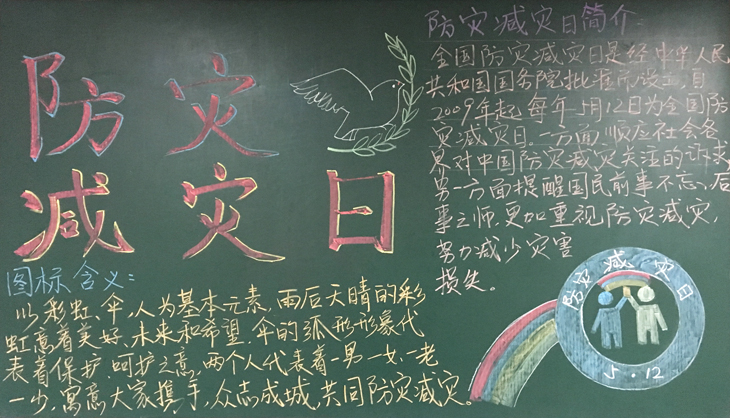 防灾
减灾日
防灾减灾日简介:
全国防灾减灾日是经中华人民
共和国国务院批准而设立,自
2009年起,每年5月12日为全国防
灾减灾日。一方面,顺应社会各
界对中国防灾减灾关注的诉求,
另一方面提醒国民前事不忘,后
事之师,更加重视防灾减灾,
努力减少灾害
损失。
图标含义:
以彩虹、伞、人为基本元素,雨后天晴的彩
虹意着美好、未来和希望,伞的弧形形象代
表着保护、呵护之意,两个人代表着一男一女、一老
一少,寓意大家携手,众志成城,共同防灾减灾。
防灾减灾日
5·12